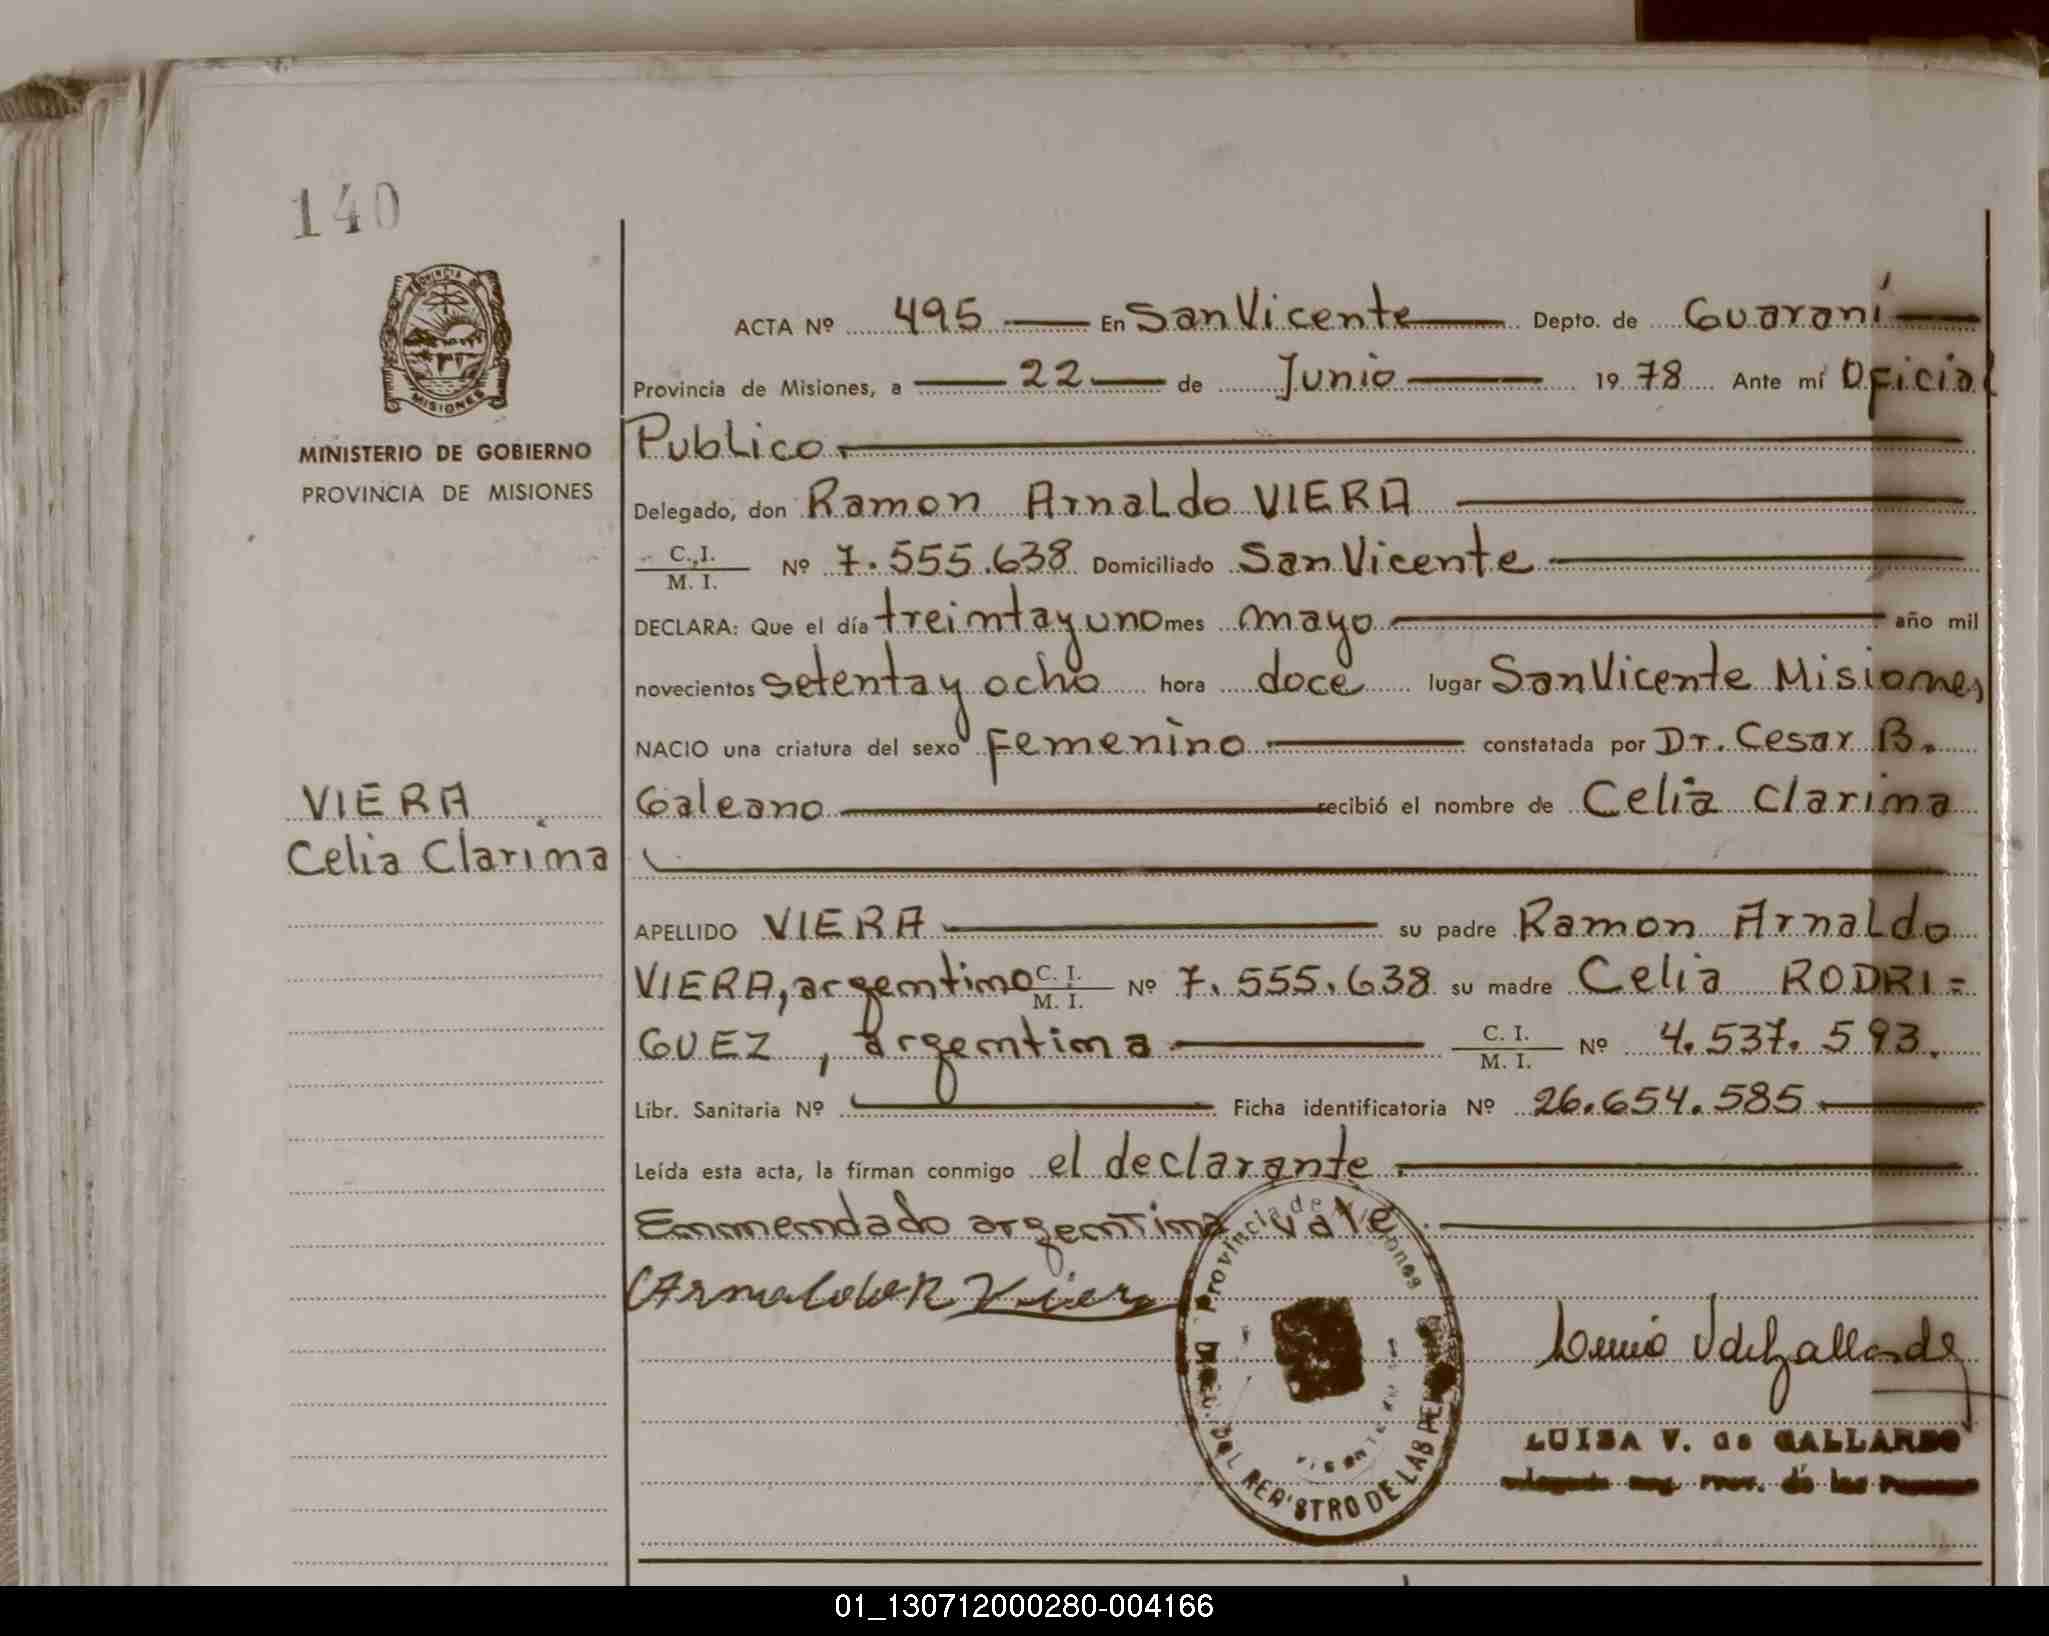 140
PROVINCIA DE
MISIONES
MINISTERIO DE GOBIERNO
PROVINCIA DE MISIONES
VIERA
Celia Clarima
ACTA Nº 495 En San Vicente Depto. de Guaraní
Provincia de Misiones, a 22 de Junio 1978 Ante mí Oficial
Publico
Delegado, don Ramon Arnaldo VIERA
C. I.
M. I. Nº 7.555.638 Domiciliado San Vicente
DECLARA: Que el día treinta y uno mes mayo año mil
novecientos setenta y ocho hora doce lugar San Vicente Misiones
NACIO una criatura del sexo femenino constatada por Dr. Cesar B.
Galeano recibió el nombre de Celia Clarima
APELLIDO VIERA su padre Ramon Arnaldo
VIERA, argentino C. I. M. I. Nº 7.555.638 su madre Celia RODRI=
GUEZ, argentina C. I. M. I. Nº 4.537.593.
Libr. Sanitaria Nº Ficha identificatoria Nº 26.654.585
Leída esta acta, la firman conmigo el declarante
Enmendado argentina vale
Arnaldo R Viera
Provincia de Misiones
DEL REGISTRO DE LAS PER
LUISA V. de GALLARDO
01_130712000280-004166